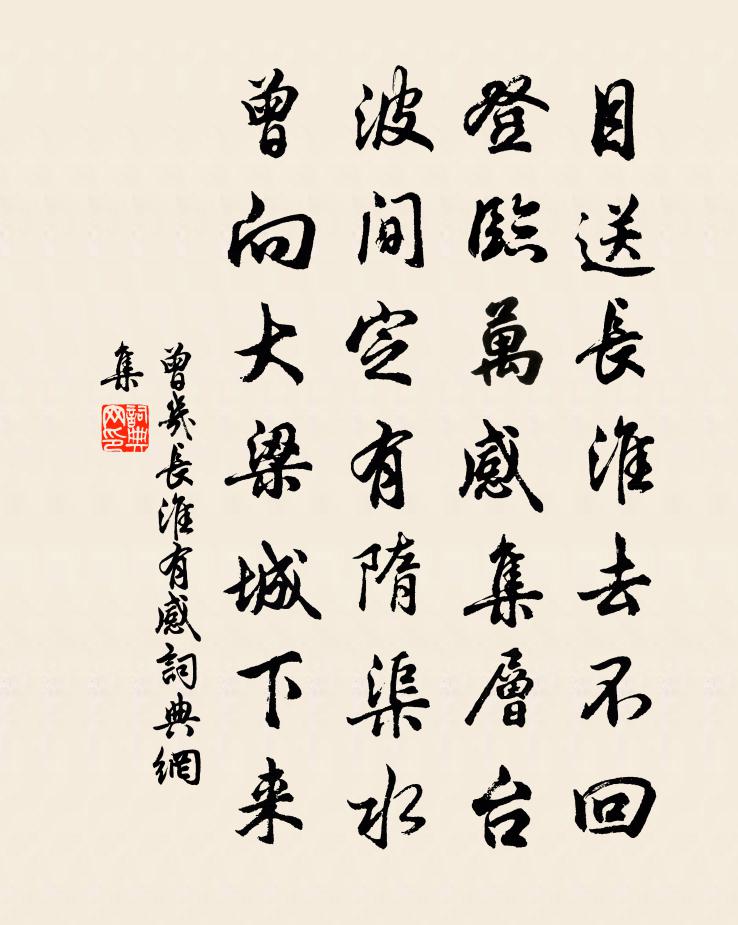 目送長淮去不回
登臨萬感集層台
波間定有隋渠水
曾向大梁城下来
曾幾長淮有感詞典網
集
詞典网印